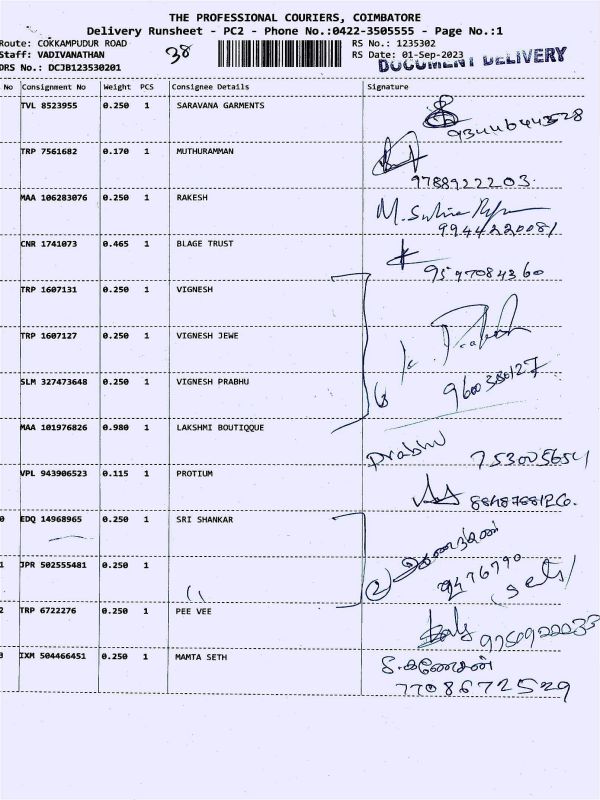 THE PROFESSIONAL COURIERS, COIMBATORE
Delivery Runsheet - PC2 - Phone No.:0422-3505555 - Page No.:1
Route: COKKAMPUDUR ROAD 38 RS No.: 1235302
Staff: VADIVANATHAN RS Date: 01-Sep-2023
DRS No.: DCJB123530201 DOCUMENT DELIVERY
No Consignment No Weight PCS Consignee Details Signature
TVL 8523955 0.250 1 SARAVANA GARMENTS
93446443528
TRP 7561682 0.170 1 MUTHURAMMAN
9788922203.
MAA 106283076 0.250 1 RAKESH
9944220081
CNR 1741073 0.465 1 BLAGE TRUST
9597084360
TRP 1607131 0.250 1 VIGNESH
TRP 1607127 0.250 1 VIGNESH JEWE
Prabhu
SLM 327473648 0.250 1 VIGNESH PRABHU
MAA 101976826 0.980 1 LAKSHMI BOUTIQQUE
Prabhu
VPL 943906523 0.115 1 PROTIUM
0 EDQ 14968965 0.250 1 SRI SHANKAR
1 JPR 502555481 0.250 1
2
2 TRP 6722276 0.250 1 PEE VEE
9750922033
3 IXM 504466451 0.250 1 MAMTA SETH
7708672529